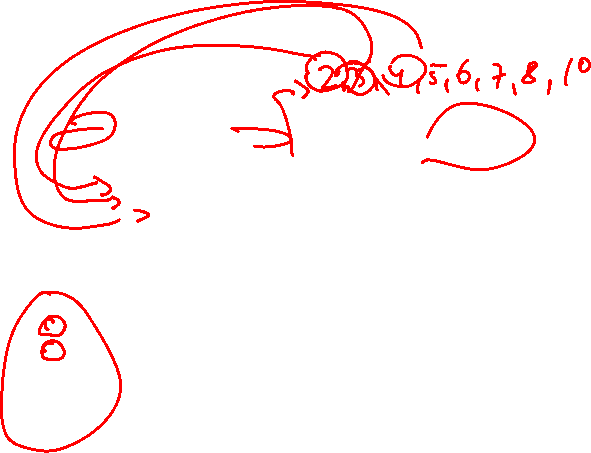 2, 3, 4, 5, 6, 7, 8, 10